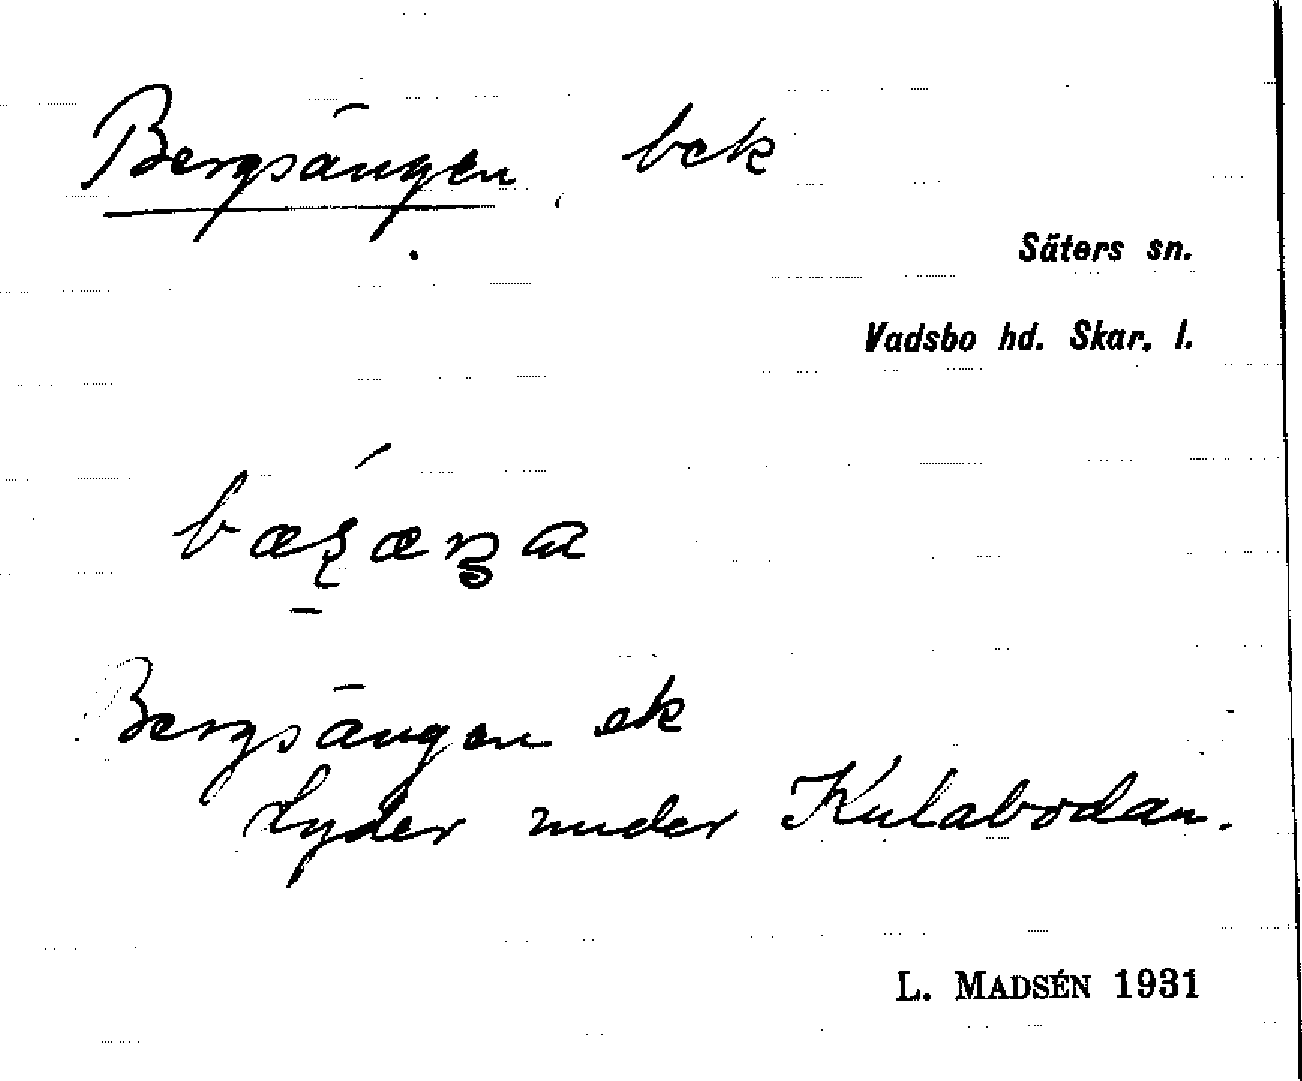 Bergsängen, bek
Säters sn.
Vadsbo hd. Skar. l.
Bergsängen ek
Lyder under Kulabodan.
L. MADSÉN 1931